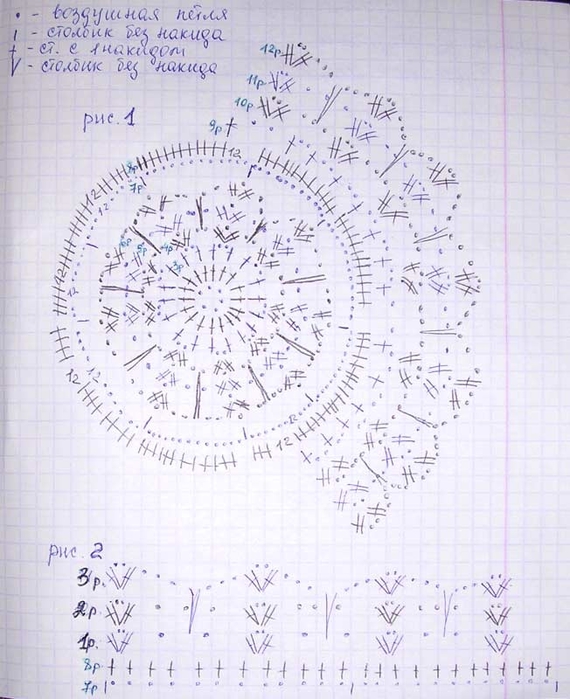 • - воздушная петля
ı - столбик без накида
† - ст. с 1 накидом
V - столбик без накида
рис. 1
12р
11р
10р
9р
8р
7р
6р
5р
4р
3р
12
12
12
12
12
12
12
12
рис. 2
3р.
2р.
1р.
8р
7р